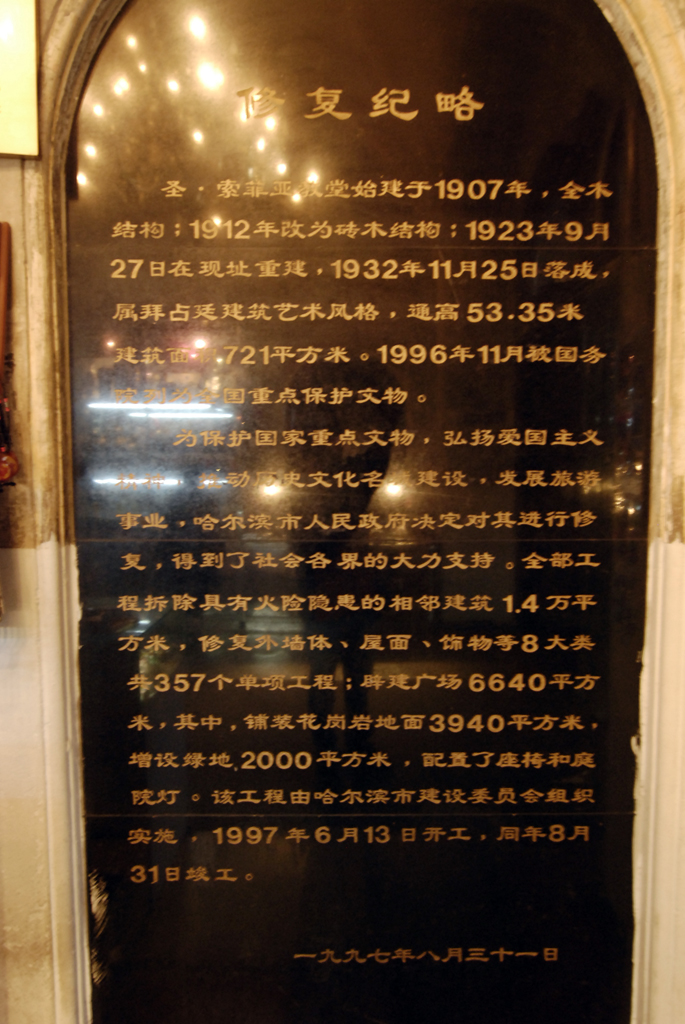 修复纪略
圣·索菲亚教堂始建于1907年，全木
结构；1912年改为砖木结构；1923年9月
27日在现址重建，1932年11月25日落成，
属拜占廷建筑艺术风格，通高53.35米
建筑面 721平方米。1996年11月被国务
院列为全国重点保护文物。
为保护国家重点文物，弘扬爱国主义
动历史文化名 建设，发展旅游
事业，哈尔滨市人民政府决定对其进行修
复，得到了社会各界的大力支持。全部工
程拆除具有火险隐患的相邻建筑1.4万平
方米，修复外墙体、屋面、饰物等8大类
共357个单项工程；辟建广场6640平方
米，其中，铺装花岗岩地面3940平方米，
增设绿地2000平方米，配置了座椅和庭
院灯。该工程由哈尔滨市建设委员会组织
实施，1997年6月13日开工，同年8月
31日竣工。
一九九七年八月三十一日